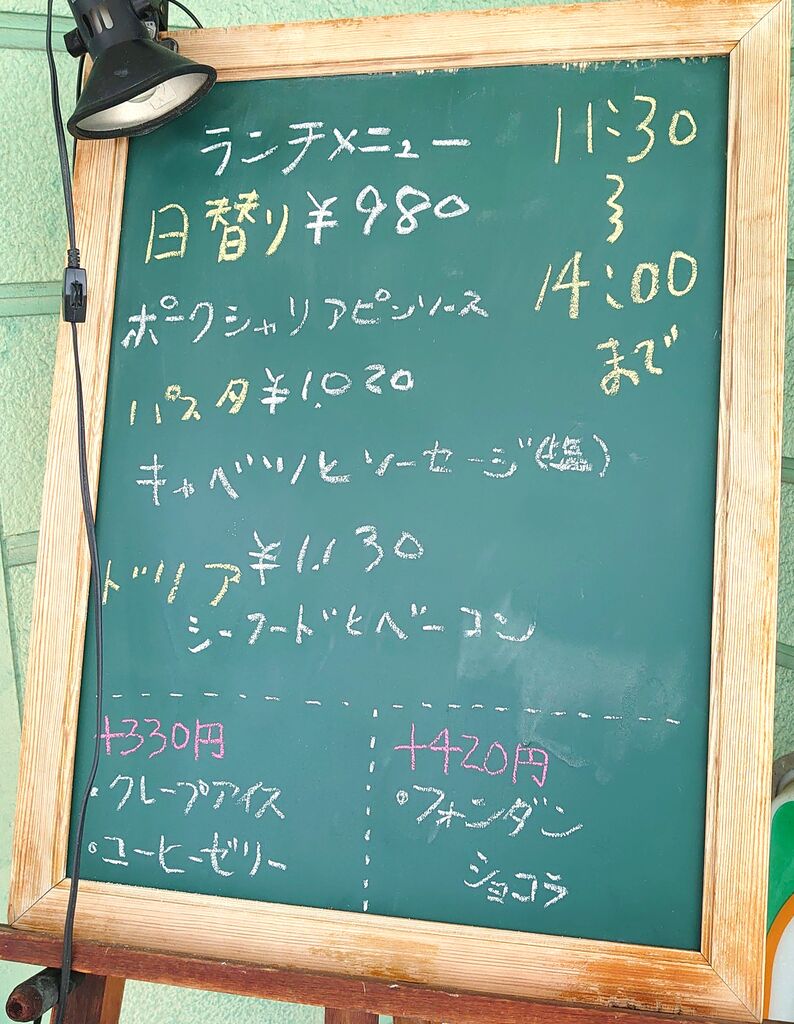 ランチメニュー
11:30
〜
14:00
まで
日替り ¥980
ポークシャリアピンソース
パスタ ¥1.020
キャベツとソーセージ(塩)
ドリア ¥1.130
シーフードとベーコン
+330円
・クレープアイス
・コーヒーゼリー
+420円
・フォンダン
ショコラ